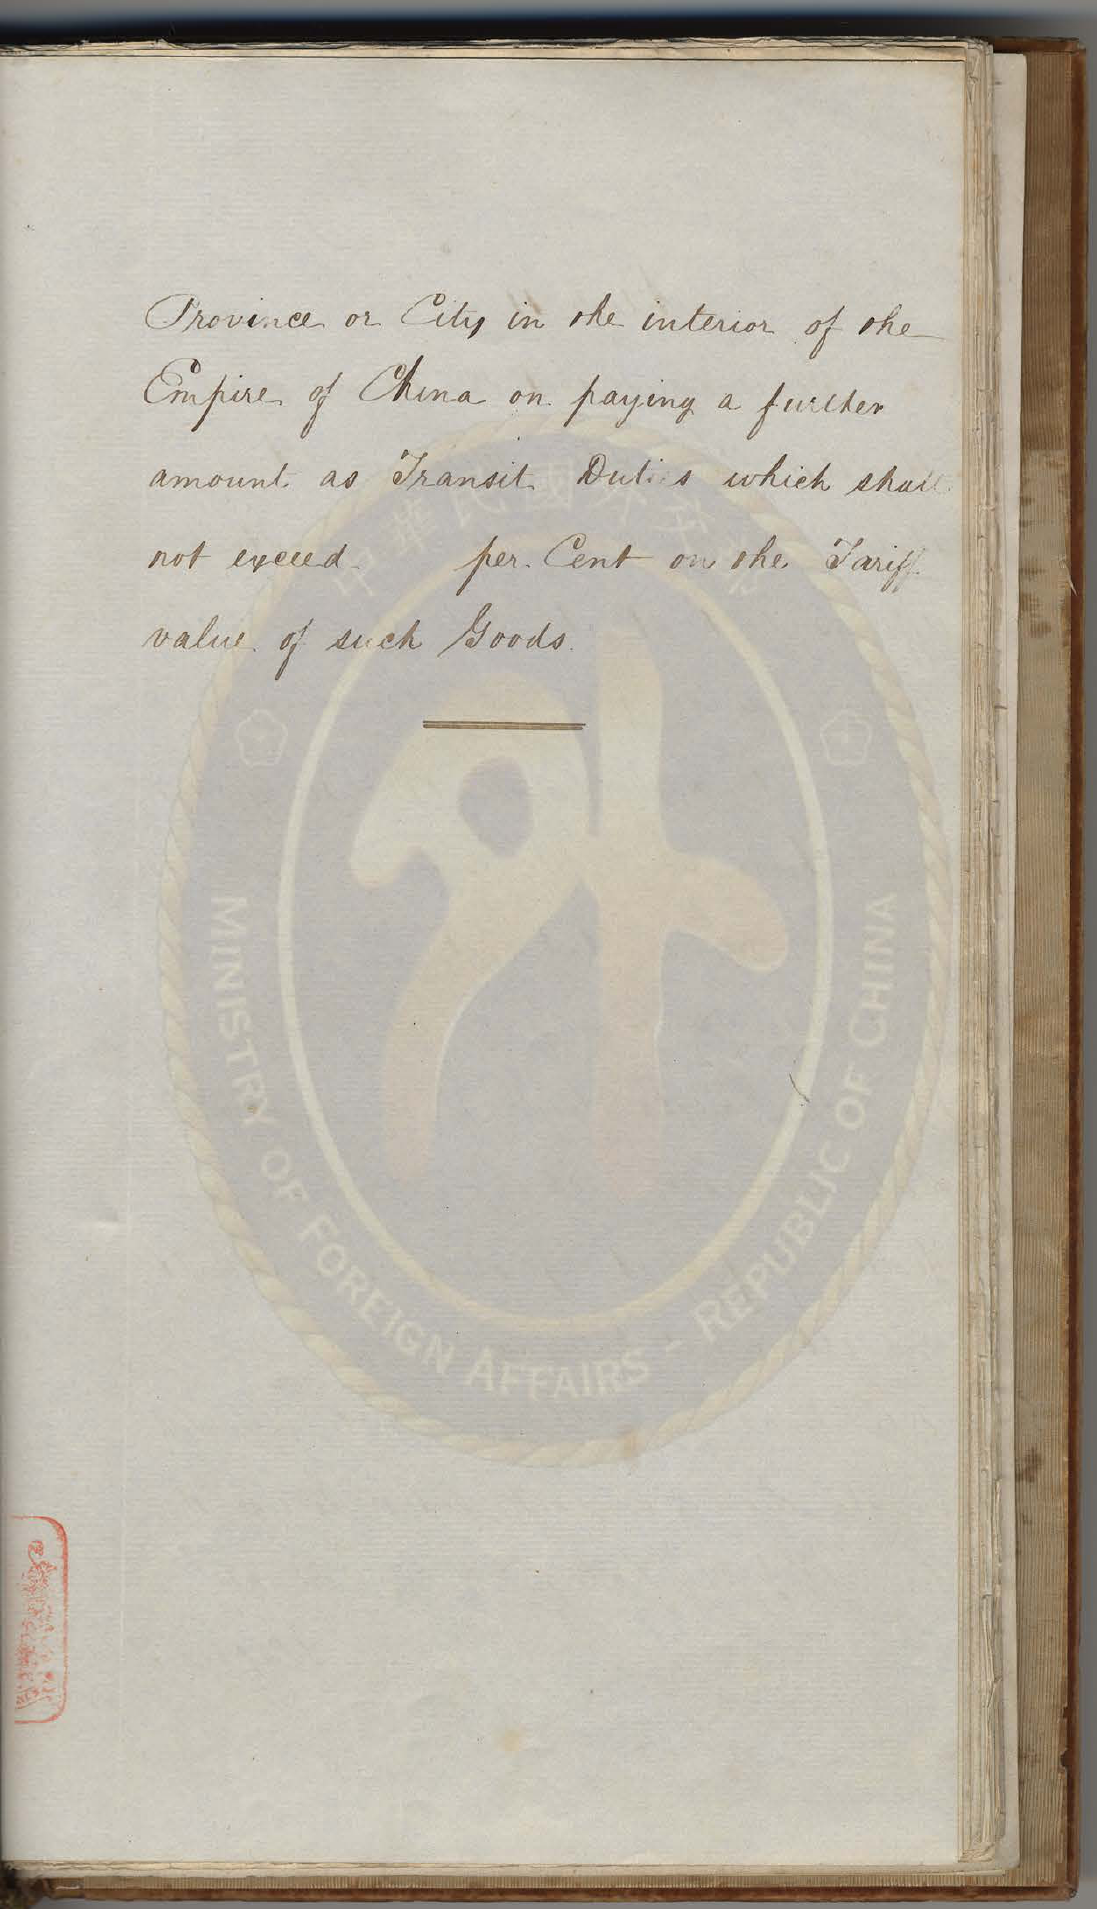 Province or City in the interior of the
Empire of China on paying a further
amount as Transit Duties which shall
not exceed per Cent on the Tariff
value of such Goods.
中華民國外交部
MINISTRY OF FOREIGN AFFAIRS - REPUBLIC OF CHINA